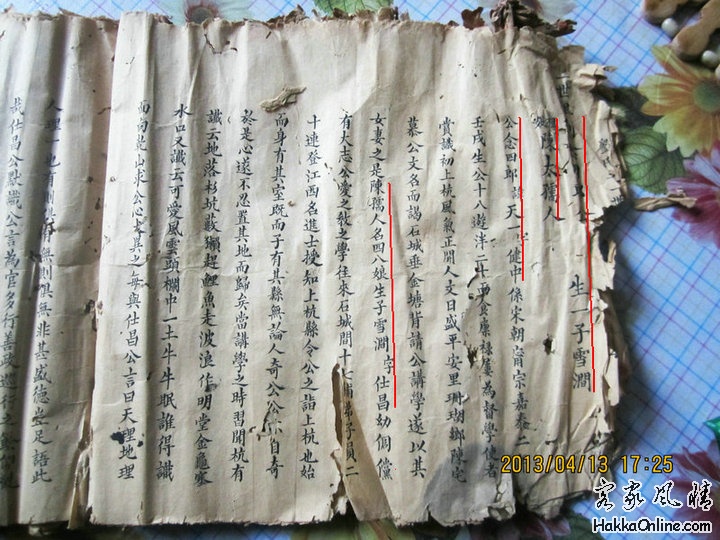 生一子雪澗
陳太孺人
公念四郎 諱天一 字健中係宋朝甯宗嘉泰二
壬戌生公十八遊泮二十四食廩祿屢為督學使者
賞識初上杭風氣正開人文日盛平安里珊瑚鄉陳宅
慕公文名而謁石城垂金塘背請公講學遂以其
女妻之是陳孺人名四八娘生子雪澗字仕昌幼倜儻
有大志公愛之教之學往來石城間十七補弟子員二
十連登江西名進士授知上杭縣令公之詣上杭也始
而身有其室既而子有其縣無論人奇公公亦自奇
於是心遂不忍置其地而歸矣當講學之時習聞杭有
讖云地落杉坑藪獺趕鯉魚走波浪作明堂金龜塞
水口又讖云可愛風雲頭欄中一土牛牛眠誰得識
面南乾山求公心奇其之每與仕昌公言曰天理地理
人理一也有則俱有無則俱無非甚盛德豈足語此
哉仕昌公點識公言為官多行善政巡行之
2013/04/13 17:25
客家风情
HakkaOnline.com